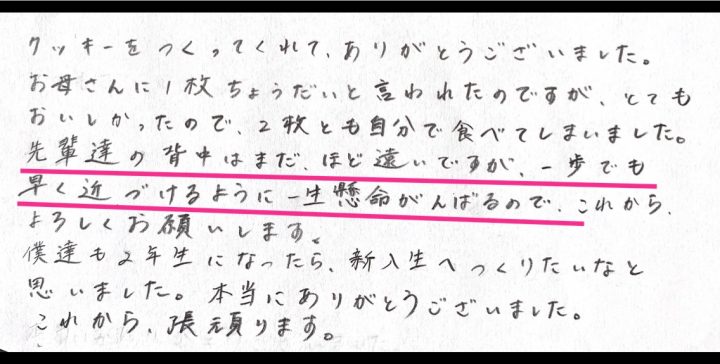 クッキーをつくってくれて、ありがとうございました。
お母さんに1枚ちょうだいと言われたのですが、とても
おいしかったので、2枚とも自分で食べてしまいました。
先輩達の背中はまだ、ほど遠いですが、一歩でも
早く近づけるように一生懸命がんばるので、これから、
よろしくお願いします。
僕達も2年生になったら、新入生へつくりたいなと
思いました。本当にありがとうございました。
これから、張頑ります。